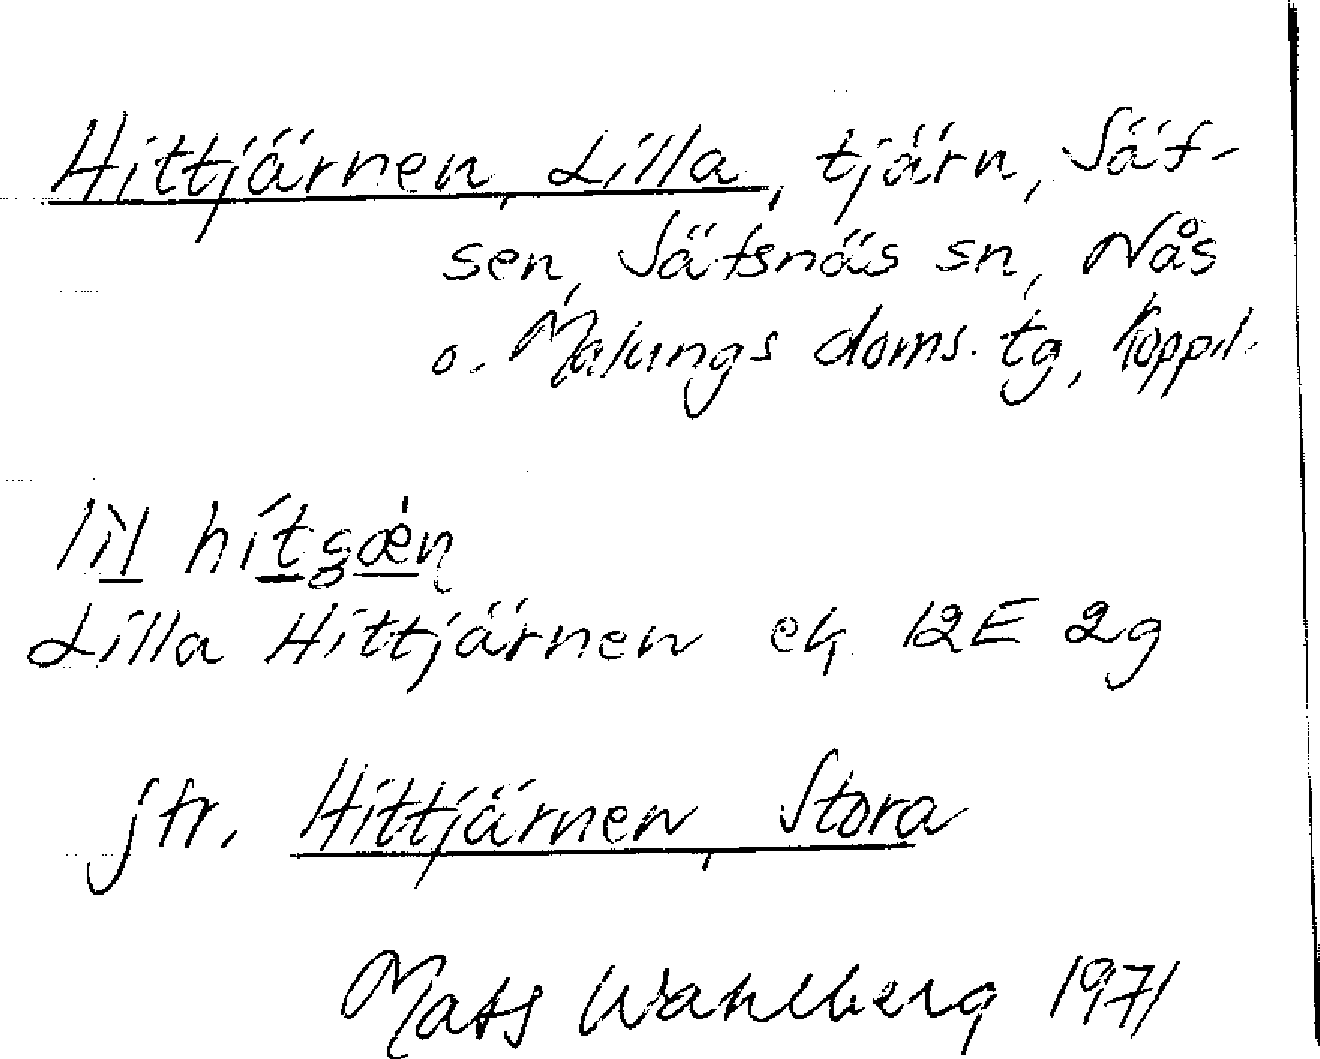 Hittjärnen, Lilla, tjärn, Säf-
sen, Säfsnäs sn, Nås
o. Malungs doms. tg, Koppl.
Lilla Hittjärnen ek 12E 2g
jfr. Hittjärnen, Stora
Mats Wahlberg 1971